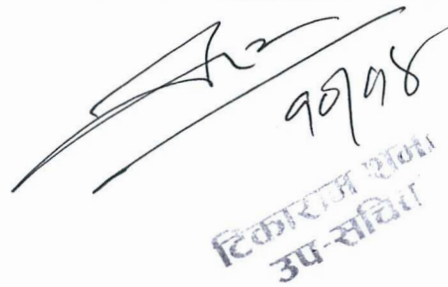 १०/१४
टिकाराम शर्मा
उप-सचिव